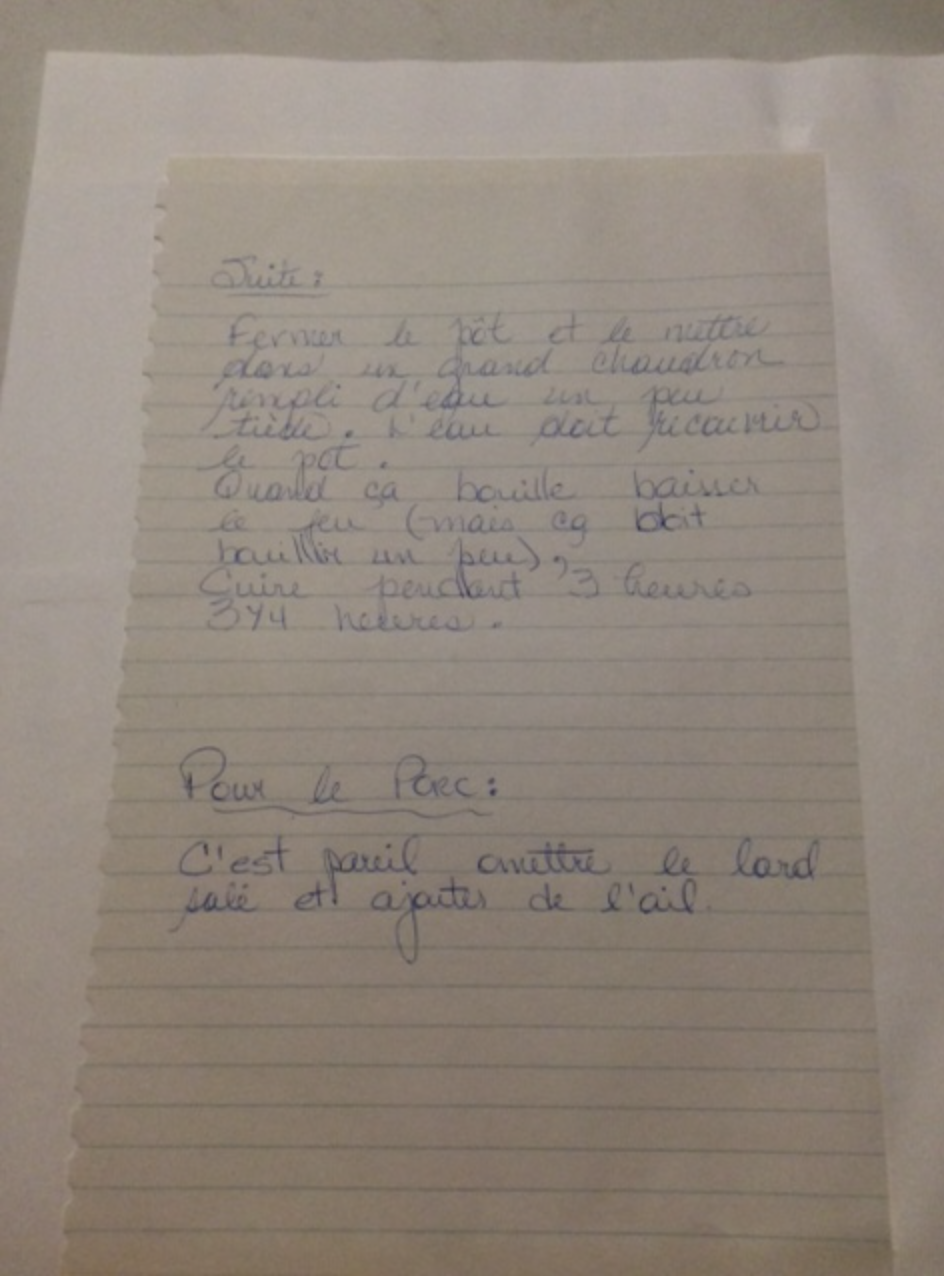 Suite :
Fermer le pôt et le mettre
dans un grand chaudron
rempli d'eau un peu
tiède. L'eau doit recouvrir
le pot.
Quand ça bouille baisser
le feu (mais ça doit
bouillir un peu).
Cuire pendant 3 heures
3 1/4 heures.
Pour le Porc :
C'est pareil omettre le lard
salé et ajouter de l'ail.